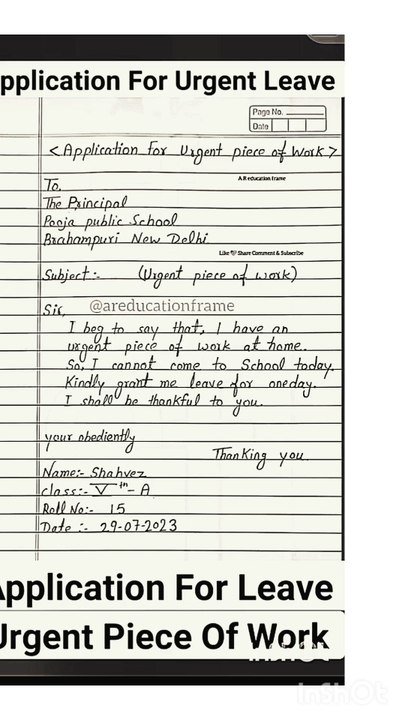 pplication For Urgent Leave
Page No.
Date
<Application for Urgent piece of Work>
A R education frame
To,
The Principal
Pooja public School
Brahampuri New Delhi
Like Share Comment & Subscribe
Subject:- (Urgent piece of work)
Sir, @areducationframe
I beg to say that, I have an
urgent piece of work at home.
So, I cannot come to School today.
Kindly grant me leave for oneday.
I shall be thankful to you.
your obediently
Thanking you
Name:- Shahvez
class:- Vth - A
Roll No:- 15
Date :- 29-07-2023
Application For Leave
Urgent Piece Of Work
InShOt